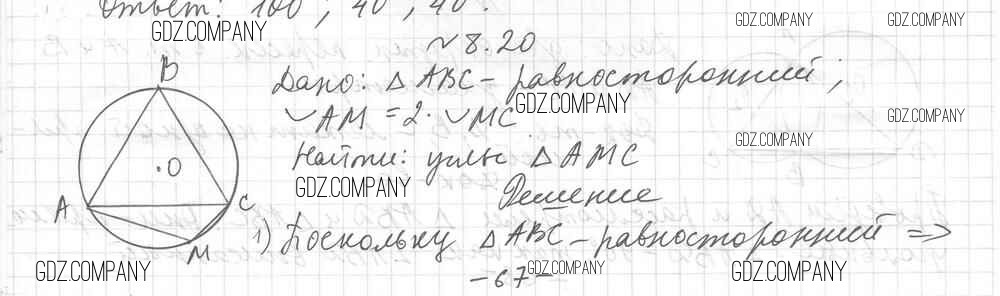 Ответ: 100°; 40°, 40°.
GDZ.COMPANY
GDZ.COMPANY
GDZ.COMPANY
~ 8.20
Дано: △ ABC – равносторонний;
GDZ.COMPANY
GDZ.COMPANY
B
◡ AM = 2·◡ MC
GDZ.COMPANY
Найти: углы △ AMC
O
GDZ.COMPANY
Решение
A
C
M
1) Поскольку △ ABC – равносторонний =>
GDZ.COMPANY
GDZ.COMPANY
GDZ.COMPANY
– 67 –